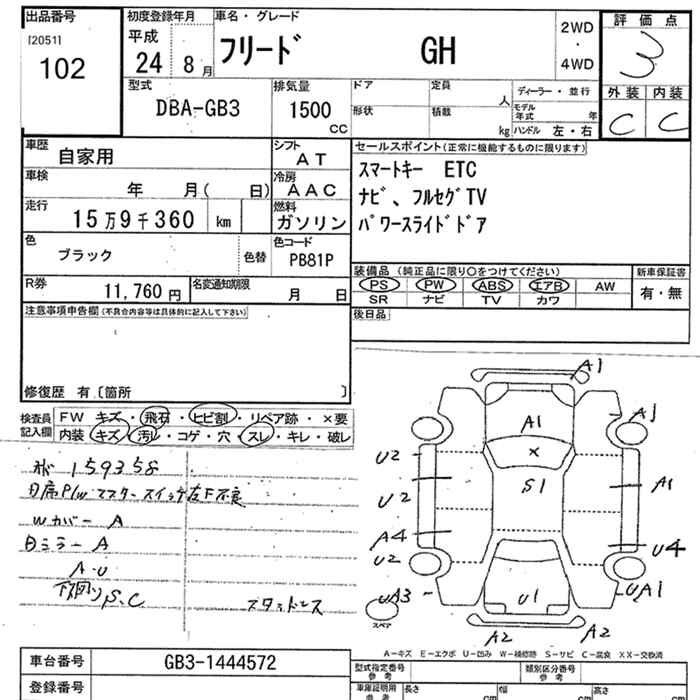 出品番号
[2051]
102
初度登録年月
平成
24 8月
車名・グレード
フリード GH
2WD
・
4WD
評価点
3
外装 内装
C C
型式
DBA-GB3
排気量
1500
CC
ドア
形状
定員
人
積載
kg
ディーラー・並行
モデル年式 年
ハンドル 左・右
車歴
自家用
シフト
AT
車検
年 月( 日)
冷房
AAC
走行
15万9千360 km
燃料
ガソリン
色
ブラック
色替
色コード
PB81P
R券
11,760円
名変通知期限
月 日
セールスポイント(正常に機能するものに限ります)
スマートキー ETC
ナビ、フルセグTV
パワースライドドア
装備品(純正品に限り○をつけてください)
新車保証書
PS PW ABS エアB AW
有・無
SR ナビ TV カワ
後日品
注意事項申告欄(不具合内容等は具体的に記入して下さい)
修復歴 有〔箇所 〕
検査員記入欄
FW キズ・飛石・ヒビ割・リペア跡・×要
内装 キズ・汚レ・コゲ・穴・スレ・キレ・破レ
159358
D席P/Wマスタースイッチ左F不良
Wカバー A
Dミラー A
A・U
下廻りS.C
スタッドレス
A1
A1
A1
U2
X
S1
A1
U2
A4
U2
U4
UA3
U1
UA1
スペア
A2
A2
A-キズ E-エクボ U-凹み W-補修跡 S-サビ C-腐食 XX-交換済
車台番号
GB3-1444572
登録番号
型式指定番号
参考
類別区分番号
参考
車庫証明用
参考
長さ
cm
幅
cm
高さ
cm